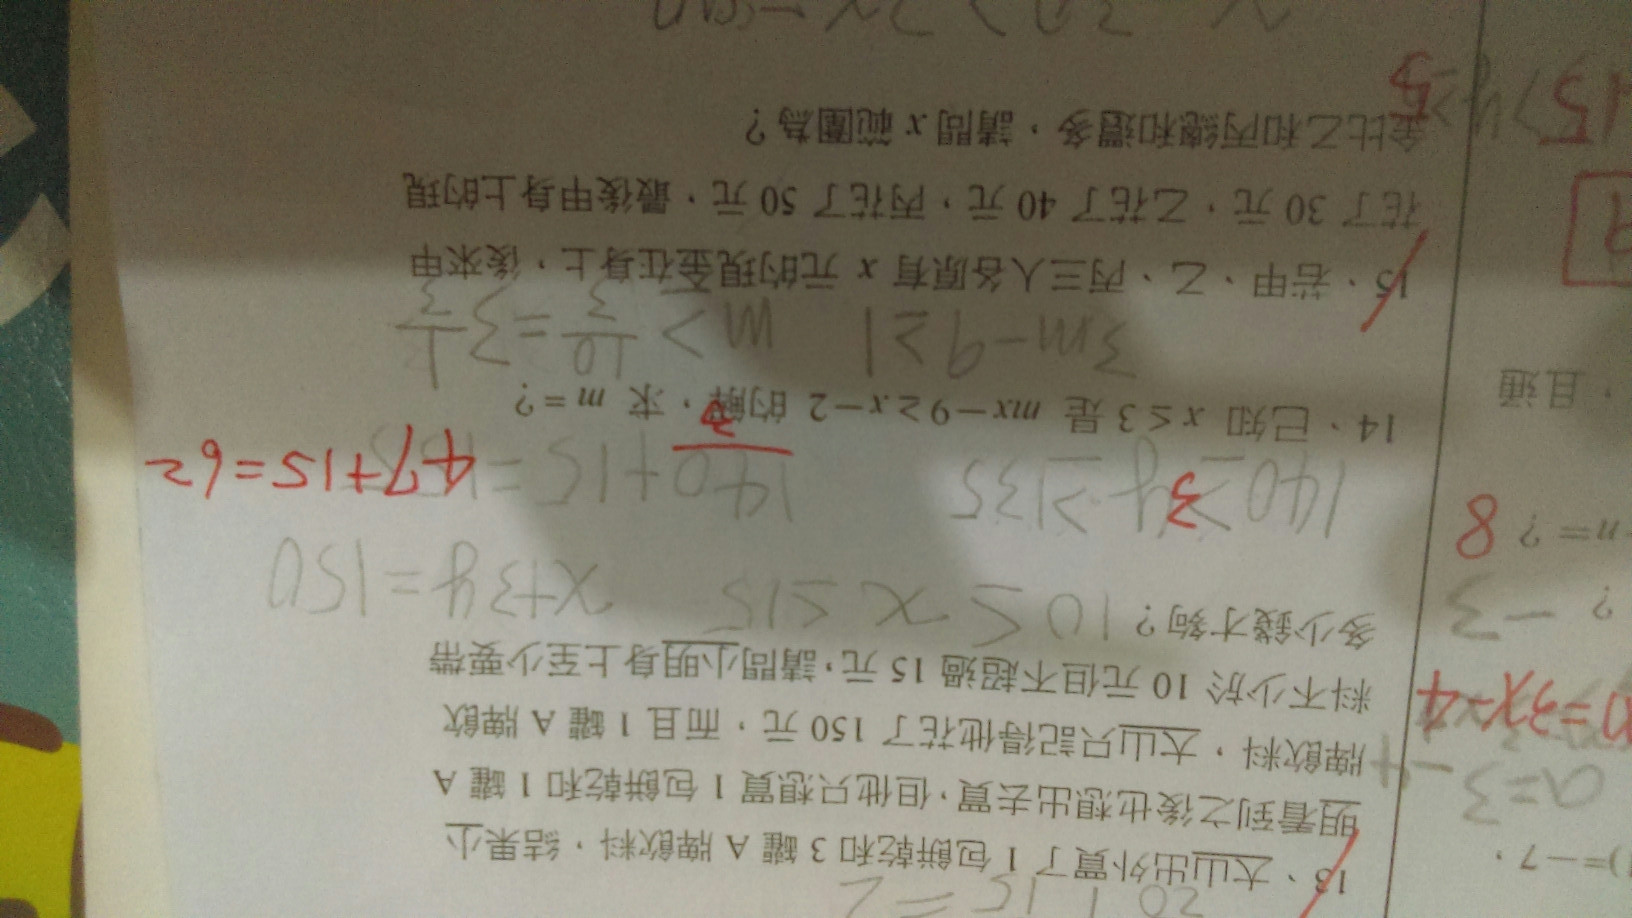 20 15 = 2
13、大山出外買了 1 包餅乾和 3 罐 A 牌飲料，結果小
明看到之後也想出去買，但他只想買 1 包餅乾和 1 罐 A
牌飲料，大山只記得他花了 150 元，而且 1 罐 A 牌飲
料不少於 10 元但不超過 15 元，請問小明身上至少要帶
多少錢才夠？ 10 ≤ x ≤ 15 x+3y=150
140 ≥ 3y ≥ 135 140+15=155
3
47+15=62
14、已知 x≤3 是 mx−9≥x−2 的解，求 m=?
3m−9≥1 m> 10/3 =3 1/3
15、若甲、乙、丙三人各原有 x 元的現金在身上，後來甲
花了 30 元，乙花了 40 元，丙花了 50 元，最後甲身上的現
金比乙和丙總和還多，請問 x 範圍為？
)=−7，
a=3
−4
=3x−4
? −3
n=? 8
，且通
9
15>y>5